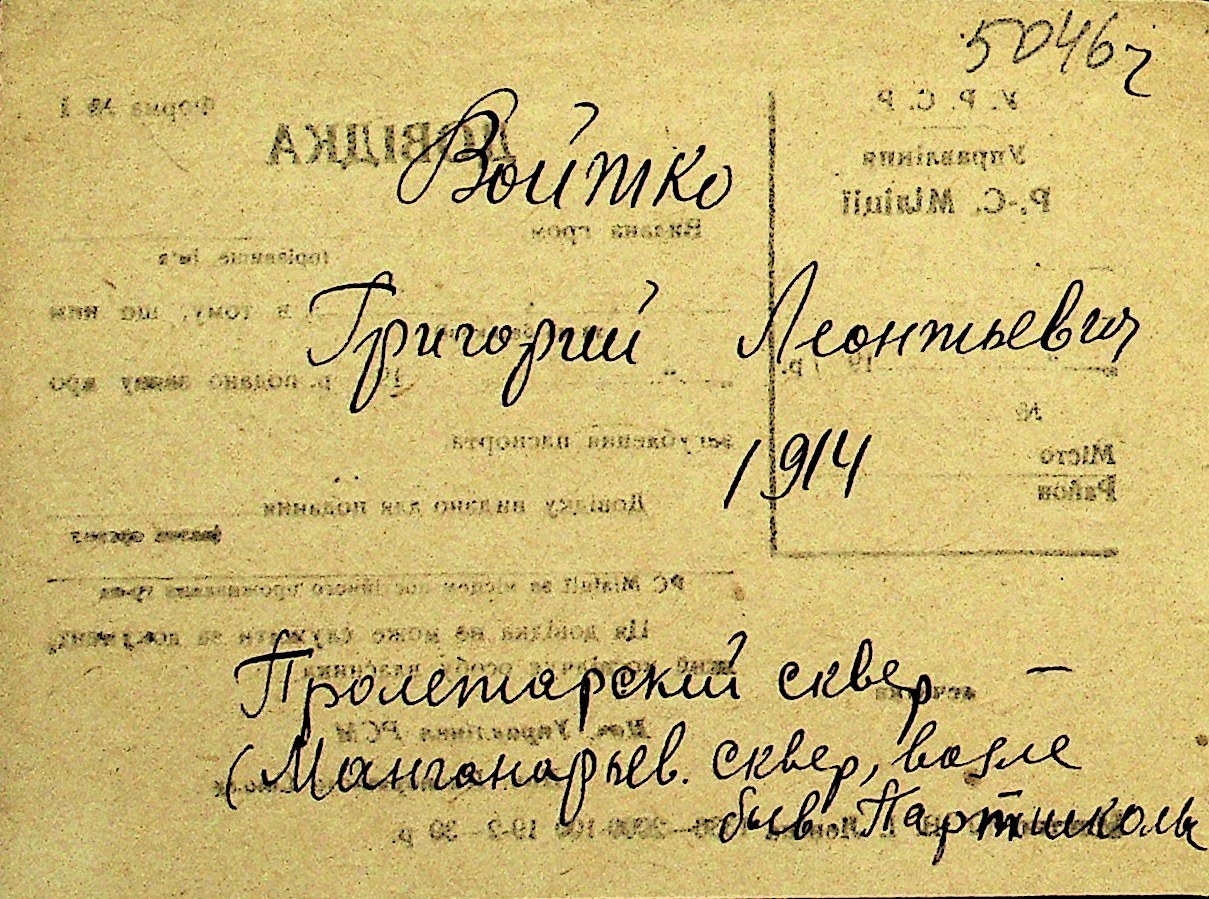 5046ч
Войтко
Григорий Леонтьевич
1914
Пролетарский сквер –
(Манганарьев. сквер, возле
быв Партшколы
Форма № 1
ДОВІДКА
У. Р. С. Р.
Управління
Р.-С. Міліції
Видана гром
(прізвище, ім'я
в тому, що ним
19 р. подано заяву про
загублення паспорта
Довідку видано для подання
РС Міліції за місцем постійного проживання гр-на
Ця довідка не може служити за документ,
особи власника
Нач. Управління РСМ
19 р.
№
Місто
Район